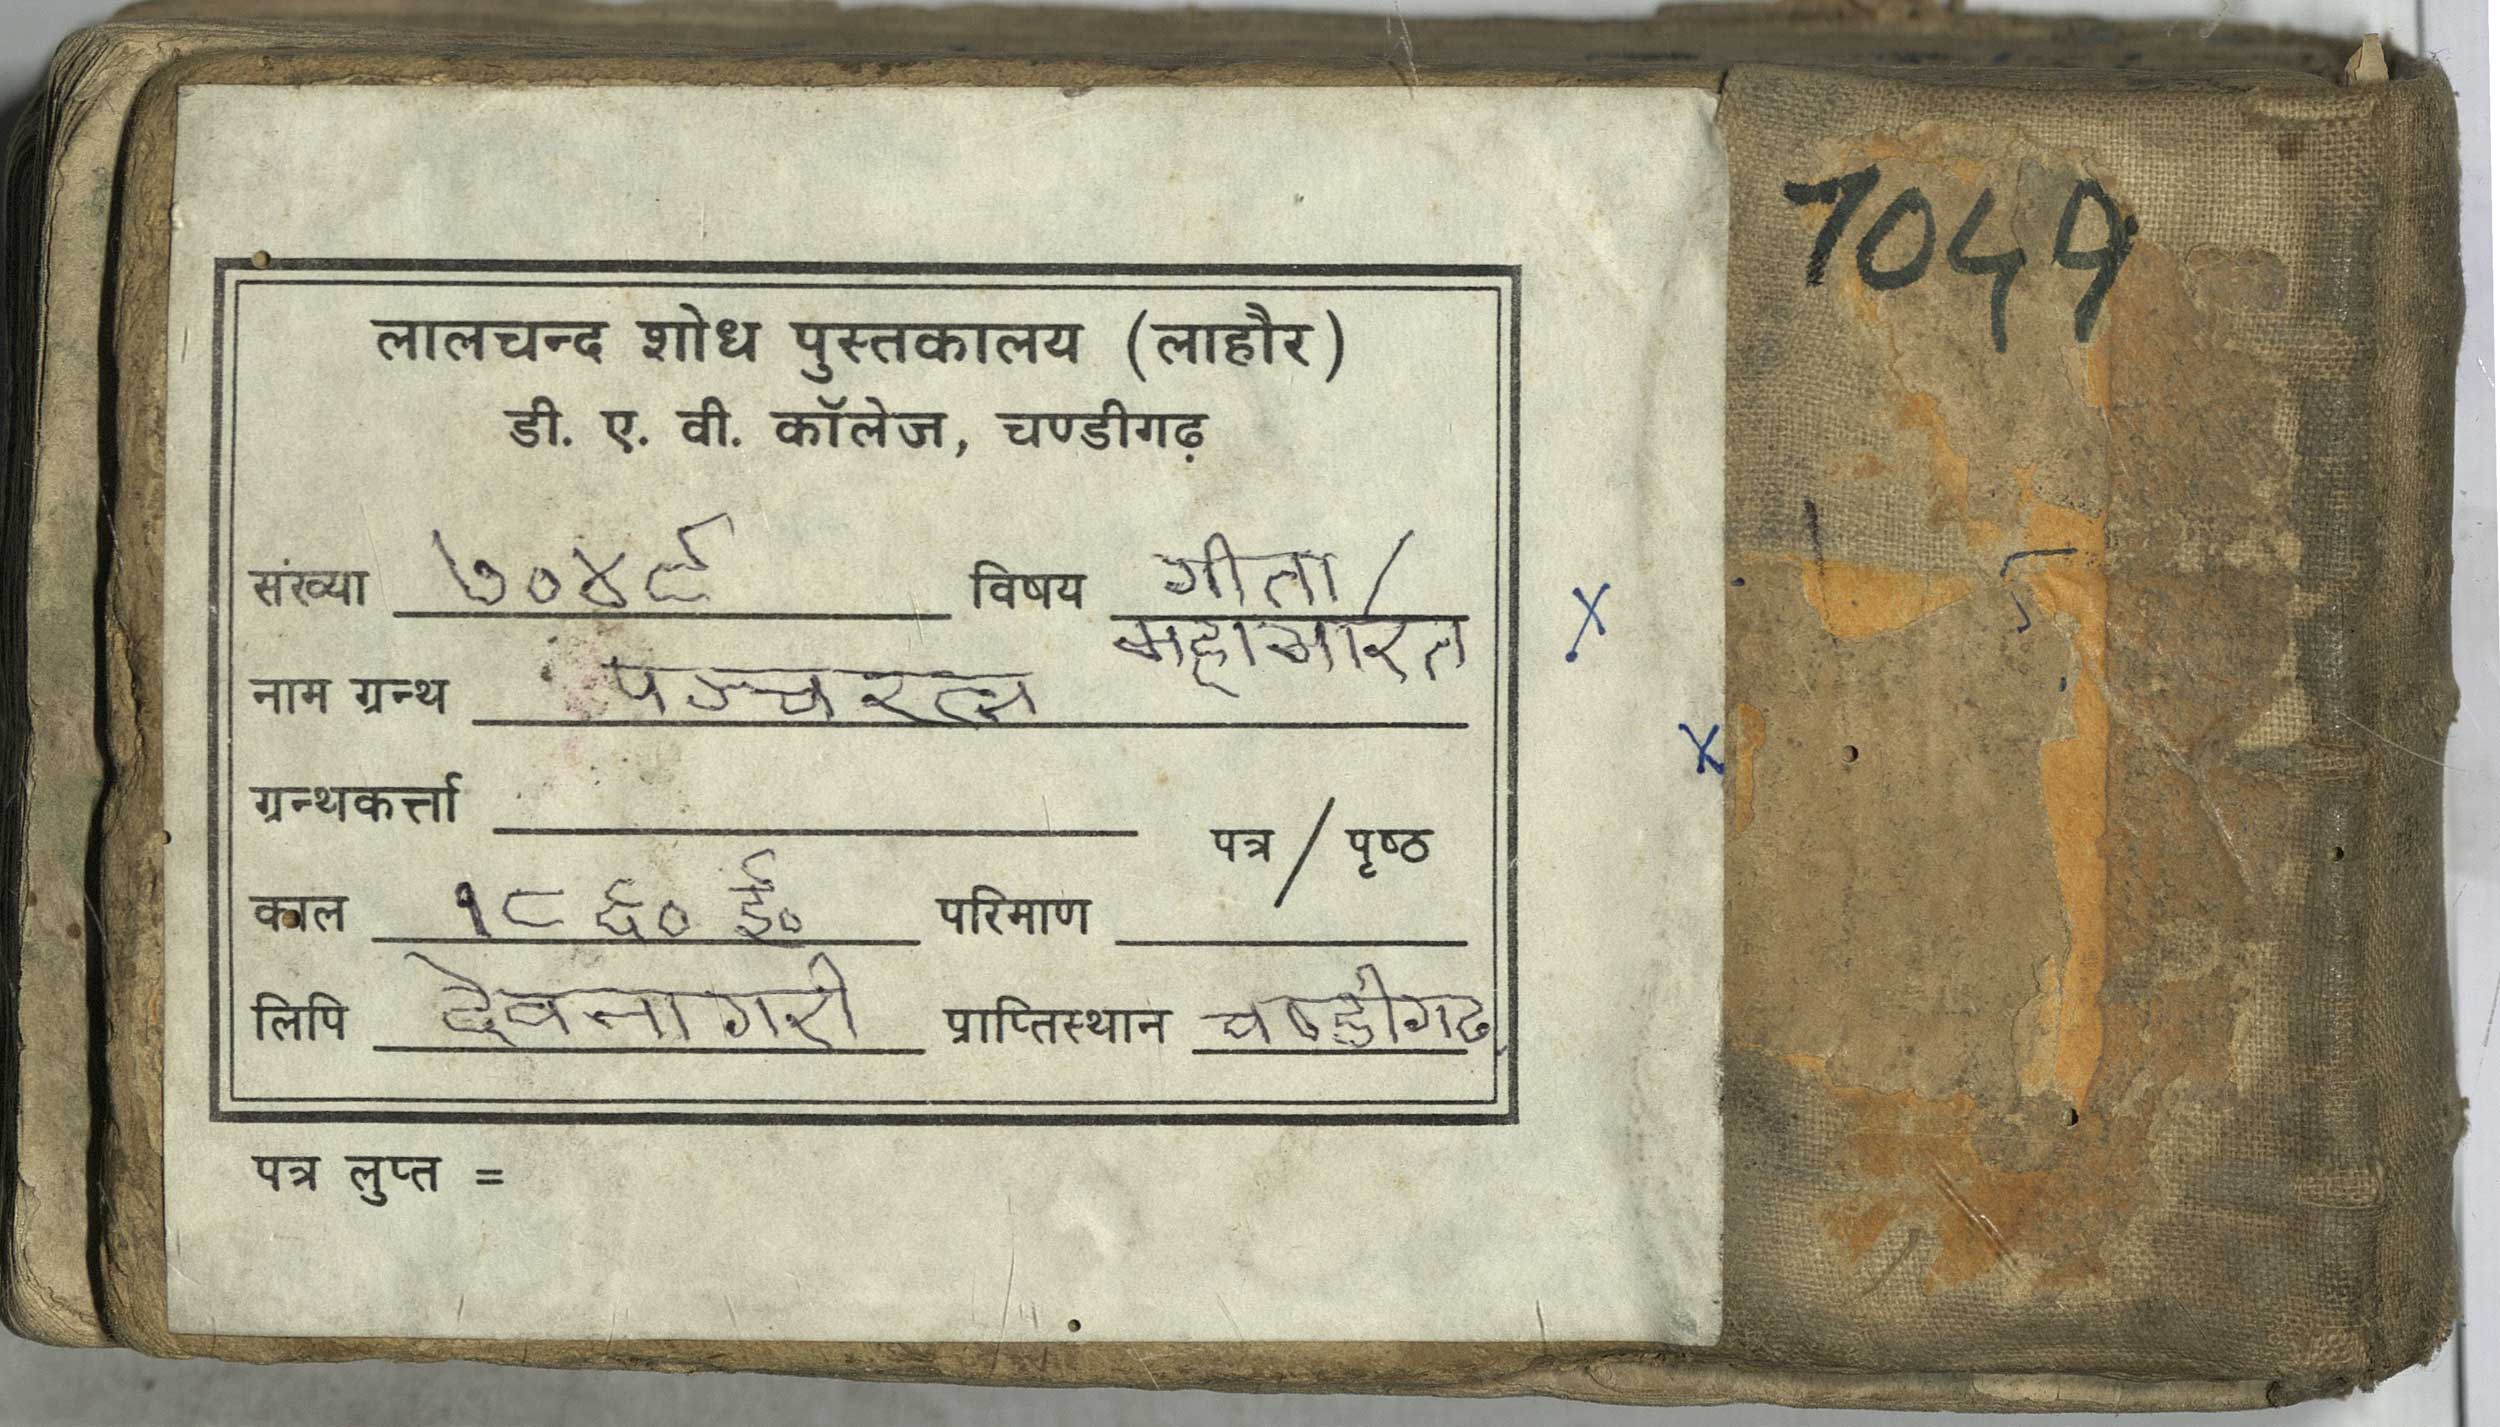 लालचन्द शोध पुस्तकालय (लाहौर)
डी. ए. वी. कॉलेज, चण्डीगढ़
संख्या ७०४९ विषय गीता/
महाभारत
नाम ग्रन्थ पञ्चरत्न
ग्रन्थकर्त्ता
पत्र / पृष्ठ
काल १८६० ई० परिमाण
लिपि देवनागरी प्राप्तिस्थान चण्डीगढ़
पत्र लुप्त =
7049